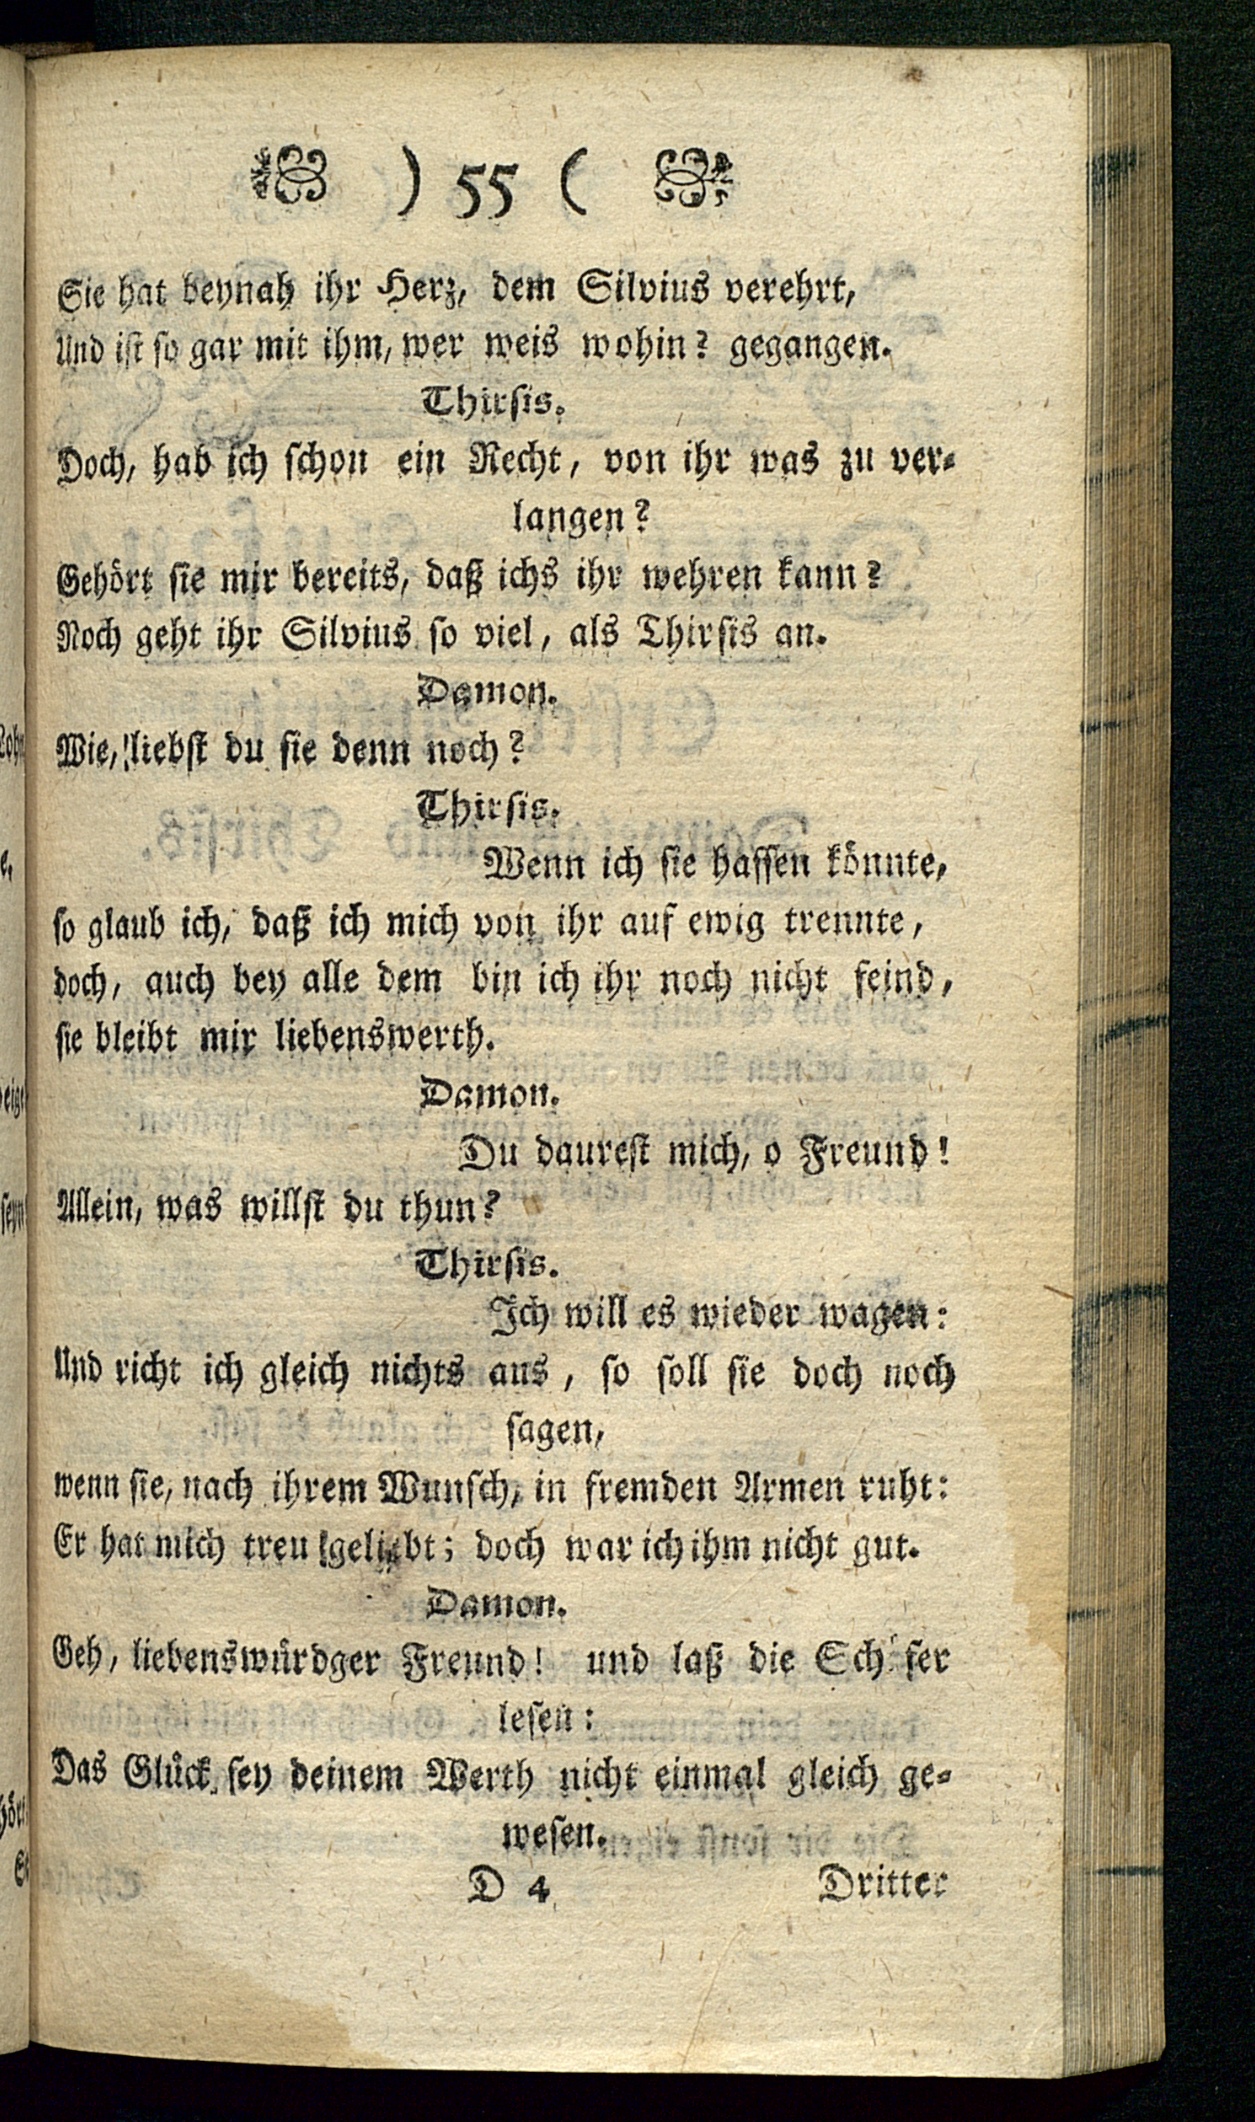 ) 55 (
Sie hat beynah ihr Herz, dem Silvius verehrt,
Und ist so gar mit ihm, wer weis wohin? gegangen.
Thirsis.
Doch, hab ich schon ein Recht, von ihr was zu ver-
langen?
Gehört sie mir bereits, daß ichs ihr wehren kann?
Noch geht ihr Silvius so viel, als Thirsis an.
Damon.
Wie, liebst du sie denn noch?
Thirsis.
Wenn ich sie hassen könnte,
so glaub ich, daß ich mich von ihr auf ewig trennte,
doch, auch bey alle dem bin ich ihr noch nicht feind,
sie bleibt mir liebenswerth.
Damon.
Du daurest mich, o Freund!
Allein, was willst du thun?
Thirsis.
Ich will es wieder wagen:
Und richt ich gleich nichts aus, so soll sie doch noch
sagen,
wenn sie, nach ihrem Wunsch, in fremden Armen ruht:
Er hat mich treu geliebt; doch war ich ihm nicht gut.
Damon.
Geh, liebenswürdger Freund! und laß die Schäfer
lesen:
Das Glück sey deinem Werth nicht einmal gleich ge-
wesen.
D 4
Dritter